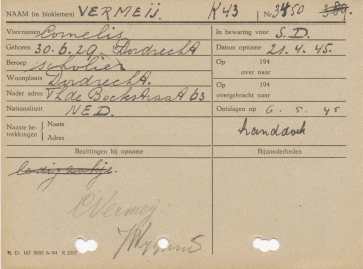 NAAM (in blokletters) VERMEIJ. K 43 No 3450 389
Voornamen Cornelis In bewaring voor S.D.
Geboren 30.6.29 - Dordrecht Datum opname 21.4.45.
Beroep scholier Op 194
over naar
Woonplaats Dordrecht.
Nader adres Th. de Bockstraat 63 Op 194
overgebracht naar
Nationaliteit NED. Ontslagen op 6.5.45
Naaste betrekkingen Naam
Adres
handdoek
Bezittingen bij opname Bijzonderheden
ledig zakje.
C Vermeij.